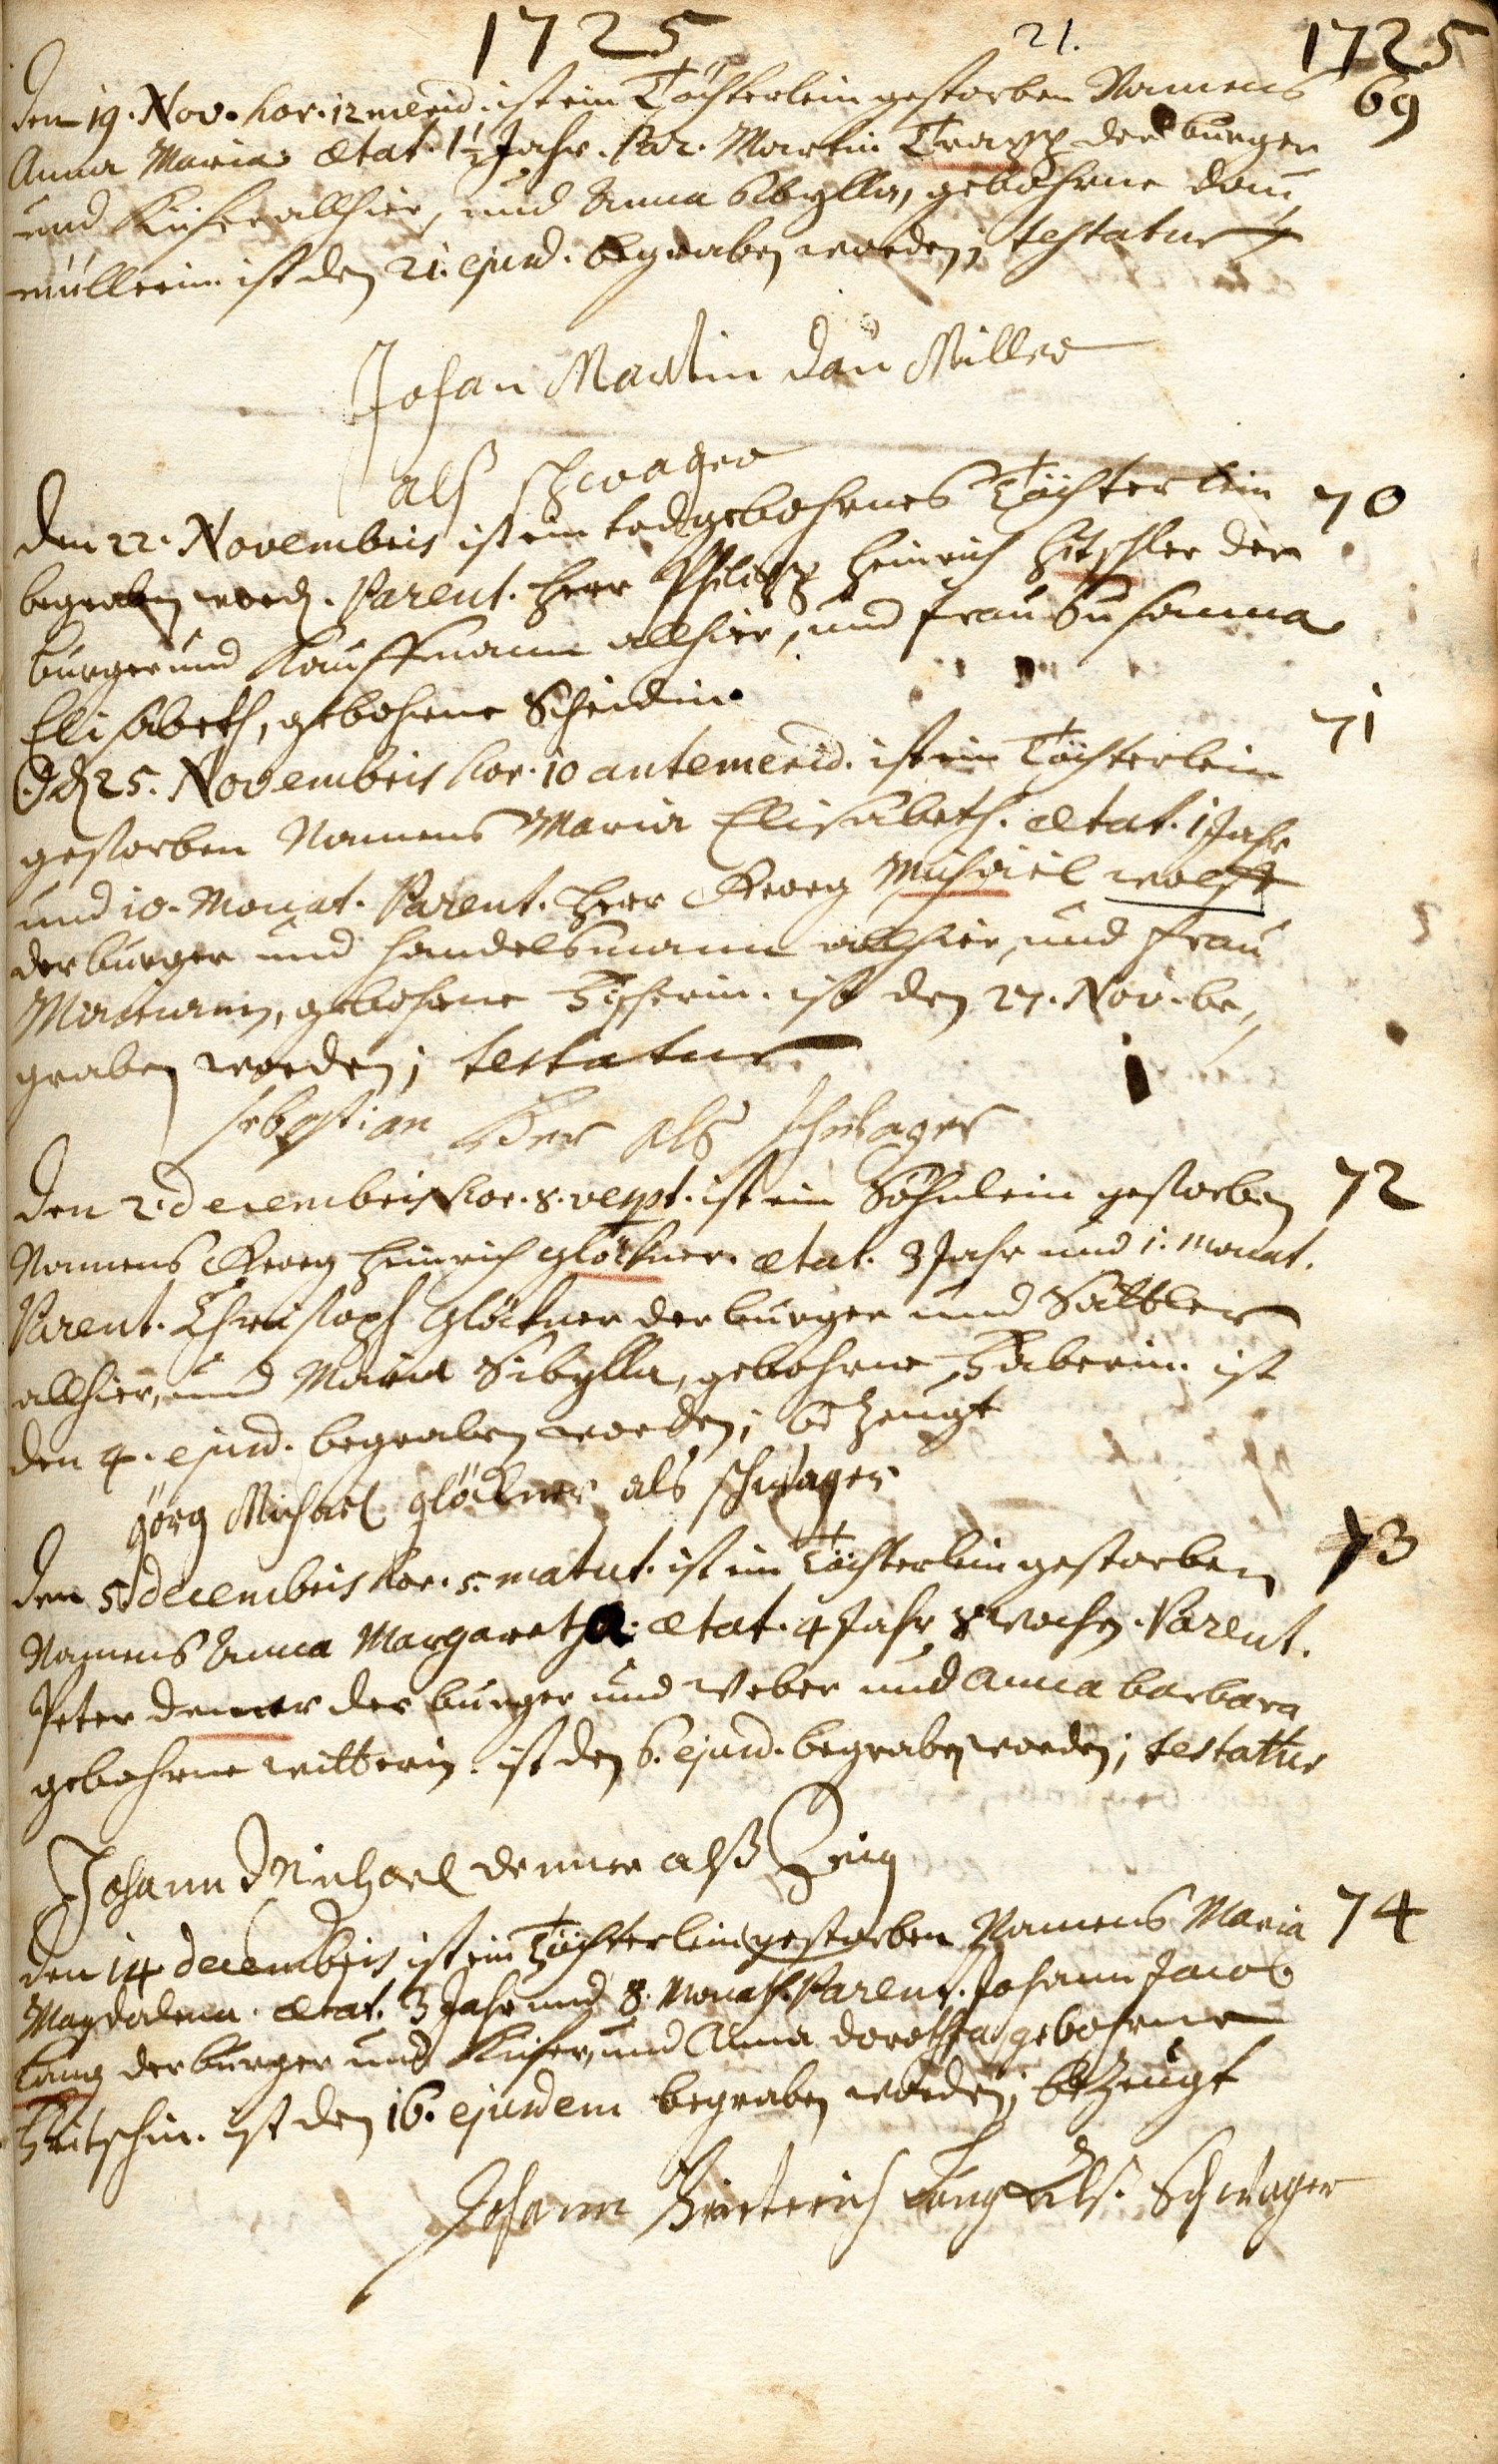 1725 21. 1725
den 19. Nov. hor. 12 merid. ist ein Töchterlein gestorben Namens 69
Anna Maria ætat. 1½ Jahr. Par. Martin Trapp der burger
und Kiefer allhier, und Anna Sibylla, gebohrne dau¬
müllerin. ist den 21. ejusd. begraben worden; testatur
Johan Martin dau Müller
alß schwager
den 22. Novembris ist ein todgebohrnes Töchterlein 70
begraben word. Parent. Herr Philipp Heinrich Hitschler der
burger und Kauffmann allhier, und Frau Susanna
Elisabeth, gebohrne Scheidin.
d. 25. Novembris hor. 10 antemerid. ist ein Töchterlein 71
gestorben Namens Maria Elisabeth. ætat. 1 Jahr
und 10. Monat. Parent. Herr Georg Michael Wolff
der burger und handelsmann allhier, und Frau
gebohrne ist den 27. Nov. be¬
graben worden; testatur
sebastian als schwager
den 2. decembris hor. 8. vespt. ist ein Söhnlein gestorben 72
Namens Georg Heinrich Glöckner. ætat. 3 Jahr und 1. Monat.
Parent. Christoph Glöckner der burger und Sattler
allhier, und Maria Sibylla, gebohrne Haberin. ist
den 4. ejusd. begraben worden; bezeugt
görg Michael glöckner als schwager
den 5. decembris hor. 5. matut. ist ein Töchterlein gestorben 73
Namens Anna Margaretha. ætat. 4 Jahr 8 wochen. Parent.
Peter der burger und Weber und Anna barbara
gebohrne witterin. ist den 6. ejusd. begraben worden; testatur
Johann Michael alß Zeug
den 14 decembris ist ein Töchterlein gestorben Namens Maria 74
Magdalena. ætat. 3 Jahr und 8. Monath. Parent. Johann Jacob
Lang der burger und Kiefer, und Anna dorothea gebohrne
ist den 16. ejusdem begraben worden; bezeugt
Johann Dieterich Lang Alß Schwager